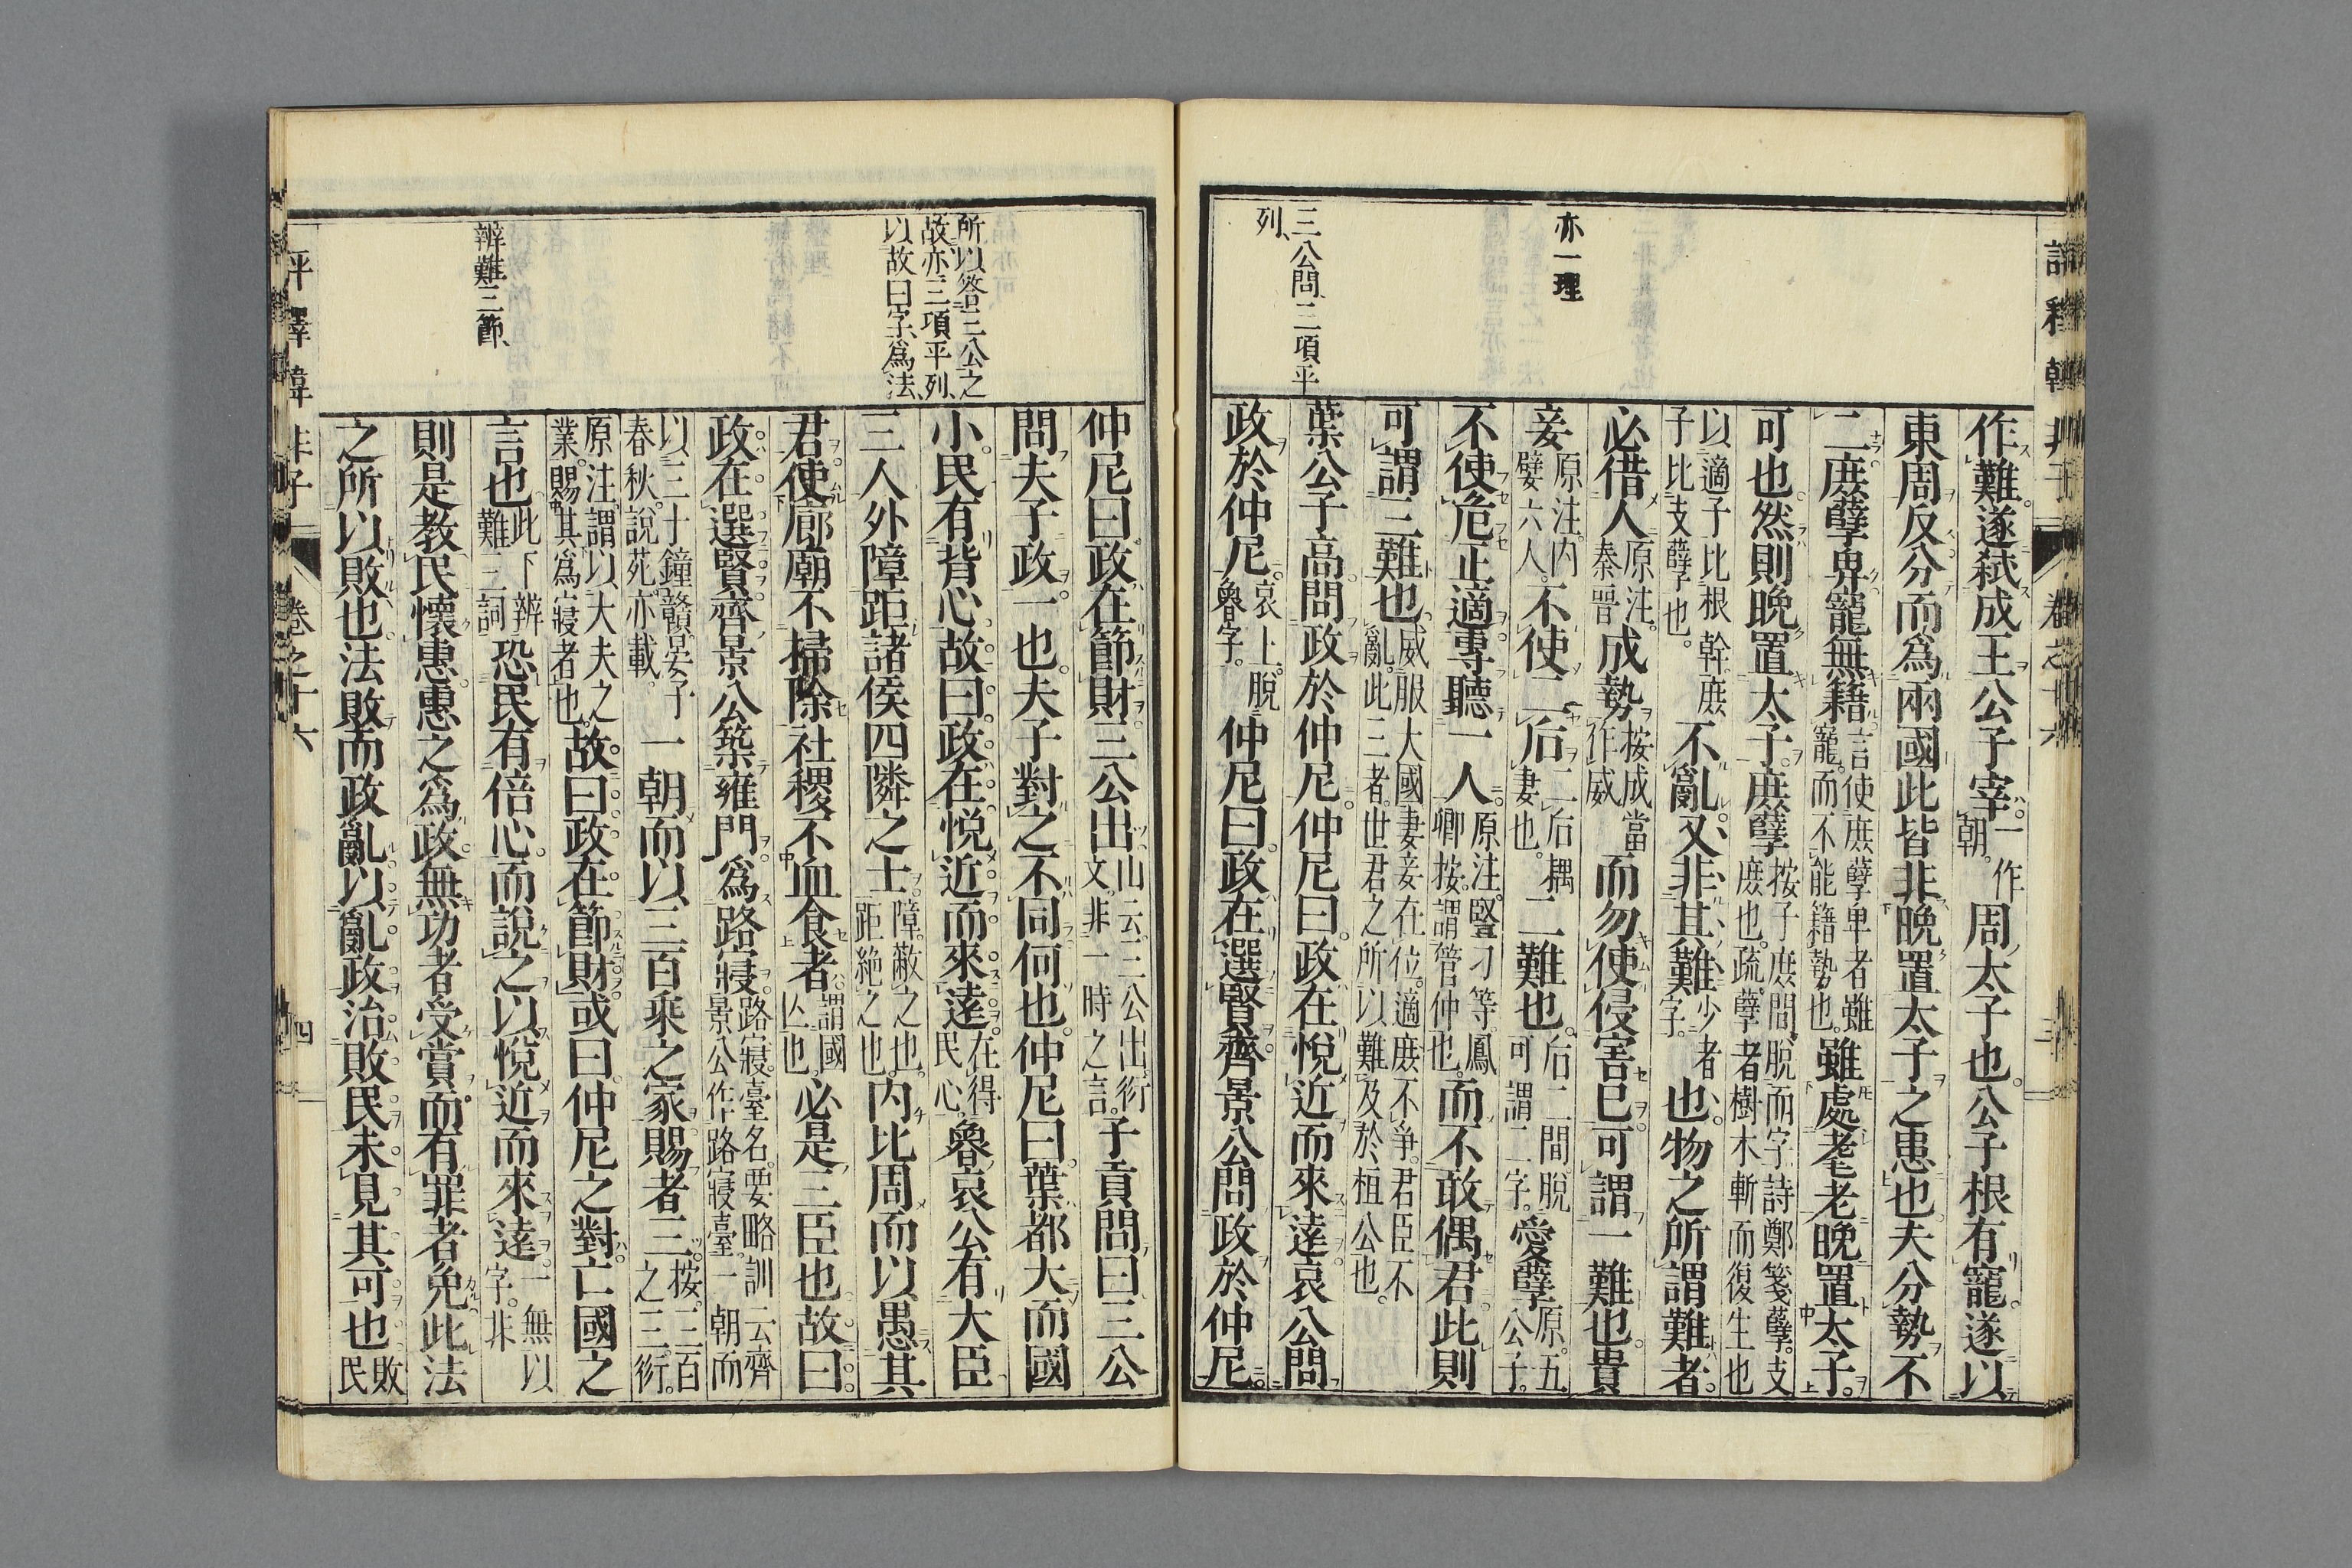 評釋韓非子 卷之十六 三
亦一理
三公問三項平
列、
作難。遂弑成王公子宰。一作朝。周太子也。公子根有寵。遂以
東周反分而爲兩國此皆非晩置太子之患也夫分勢不
二。庶孽卑寵無籍言使庶孽卑者雖寵。而不能籍勢也。雖處耄老晩置太子。
可也。然則晩置太子。庶孽按子庶間、脱而字詩鄭箋孽。支庶也。疏。孽者樹木斬而復生也
以適子比根幹。庶子比支孽子也。不亂。又非其難少者字。也。物之所謂難者。
必借人原注。秦晋成勢按成當作威而勿使侵害己可謂一難也。貴
妾原注。内嬖六人。不使二后二后耦妻也。二難也。后二間脱可謂二字。愛孽原。五公子。
不使危正適專聽一人。原注。豎刁等。鳳卿按。謂管仲也。而不敢偶君此則
可謂三難也威服大國妻妾在位。適庶不爭。君臣不亂。此三者。世君之所以難及於桓公也。
葉公子高問政於仲尼。仲尼曰。政在悅近而來遠哀公問
政於仲尼。哀上。脱魯字。仲尼曰。政在選賢。齊景公問政於仲尼。
所以答三公之
故亦三項平列、
以故曰字、爲法、
辨難三節、
仲尼曰。政在節財三公出山云。三公出衍文。非一時之言。子貢問曰。三公
問夫子政。一也。夫子對之不同何也。仲尼曰。葉都大而國
小。民有背心。故曰。政在悅近而來遠在得民心。魯哀公有大臣
三人外障距諸侯四隣之士障。蔽之也。距絶之也。内比周而以愚其
君使廊廟不掃除社稷不血食者。謂國亾也。必是三臣也。故曰。
政在選賢齊景公築雍門。爲路寢。路寢。臺名。要略訓云齊景公作路寢臺。一朝而
以三十鐘贛。晏子春秋。說苑。亦載。一朝而以三百乘之家賜者三。按。三百之三衍。
原注。謂以大夫之業。賜其爲寢者也。故曰。政在節財。或曰仲尼之對亡國之
言也。此下辨難三詞恐民有倍心。而說之以悅近而來遠。一無以字。非
則是教民懷惠。惠之爲政。無功者受賞。而有罪者免此法
之所以敗也。法敗而政亂以亂政治敗民未見其可也敗民
評釋韓非子 卷之十六 四